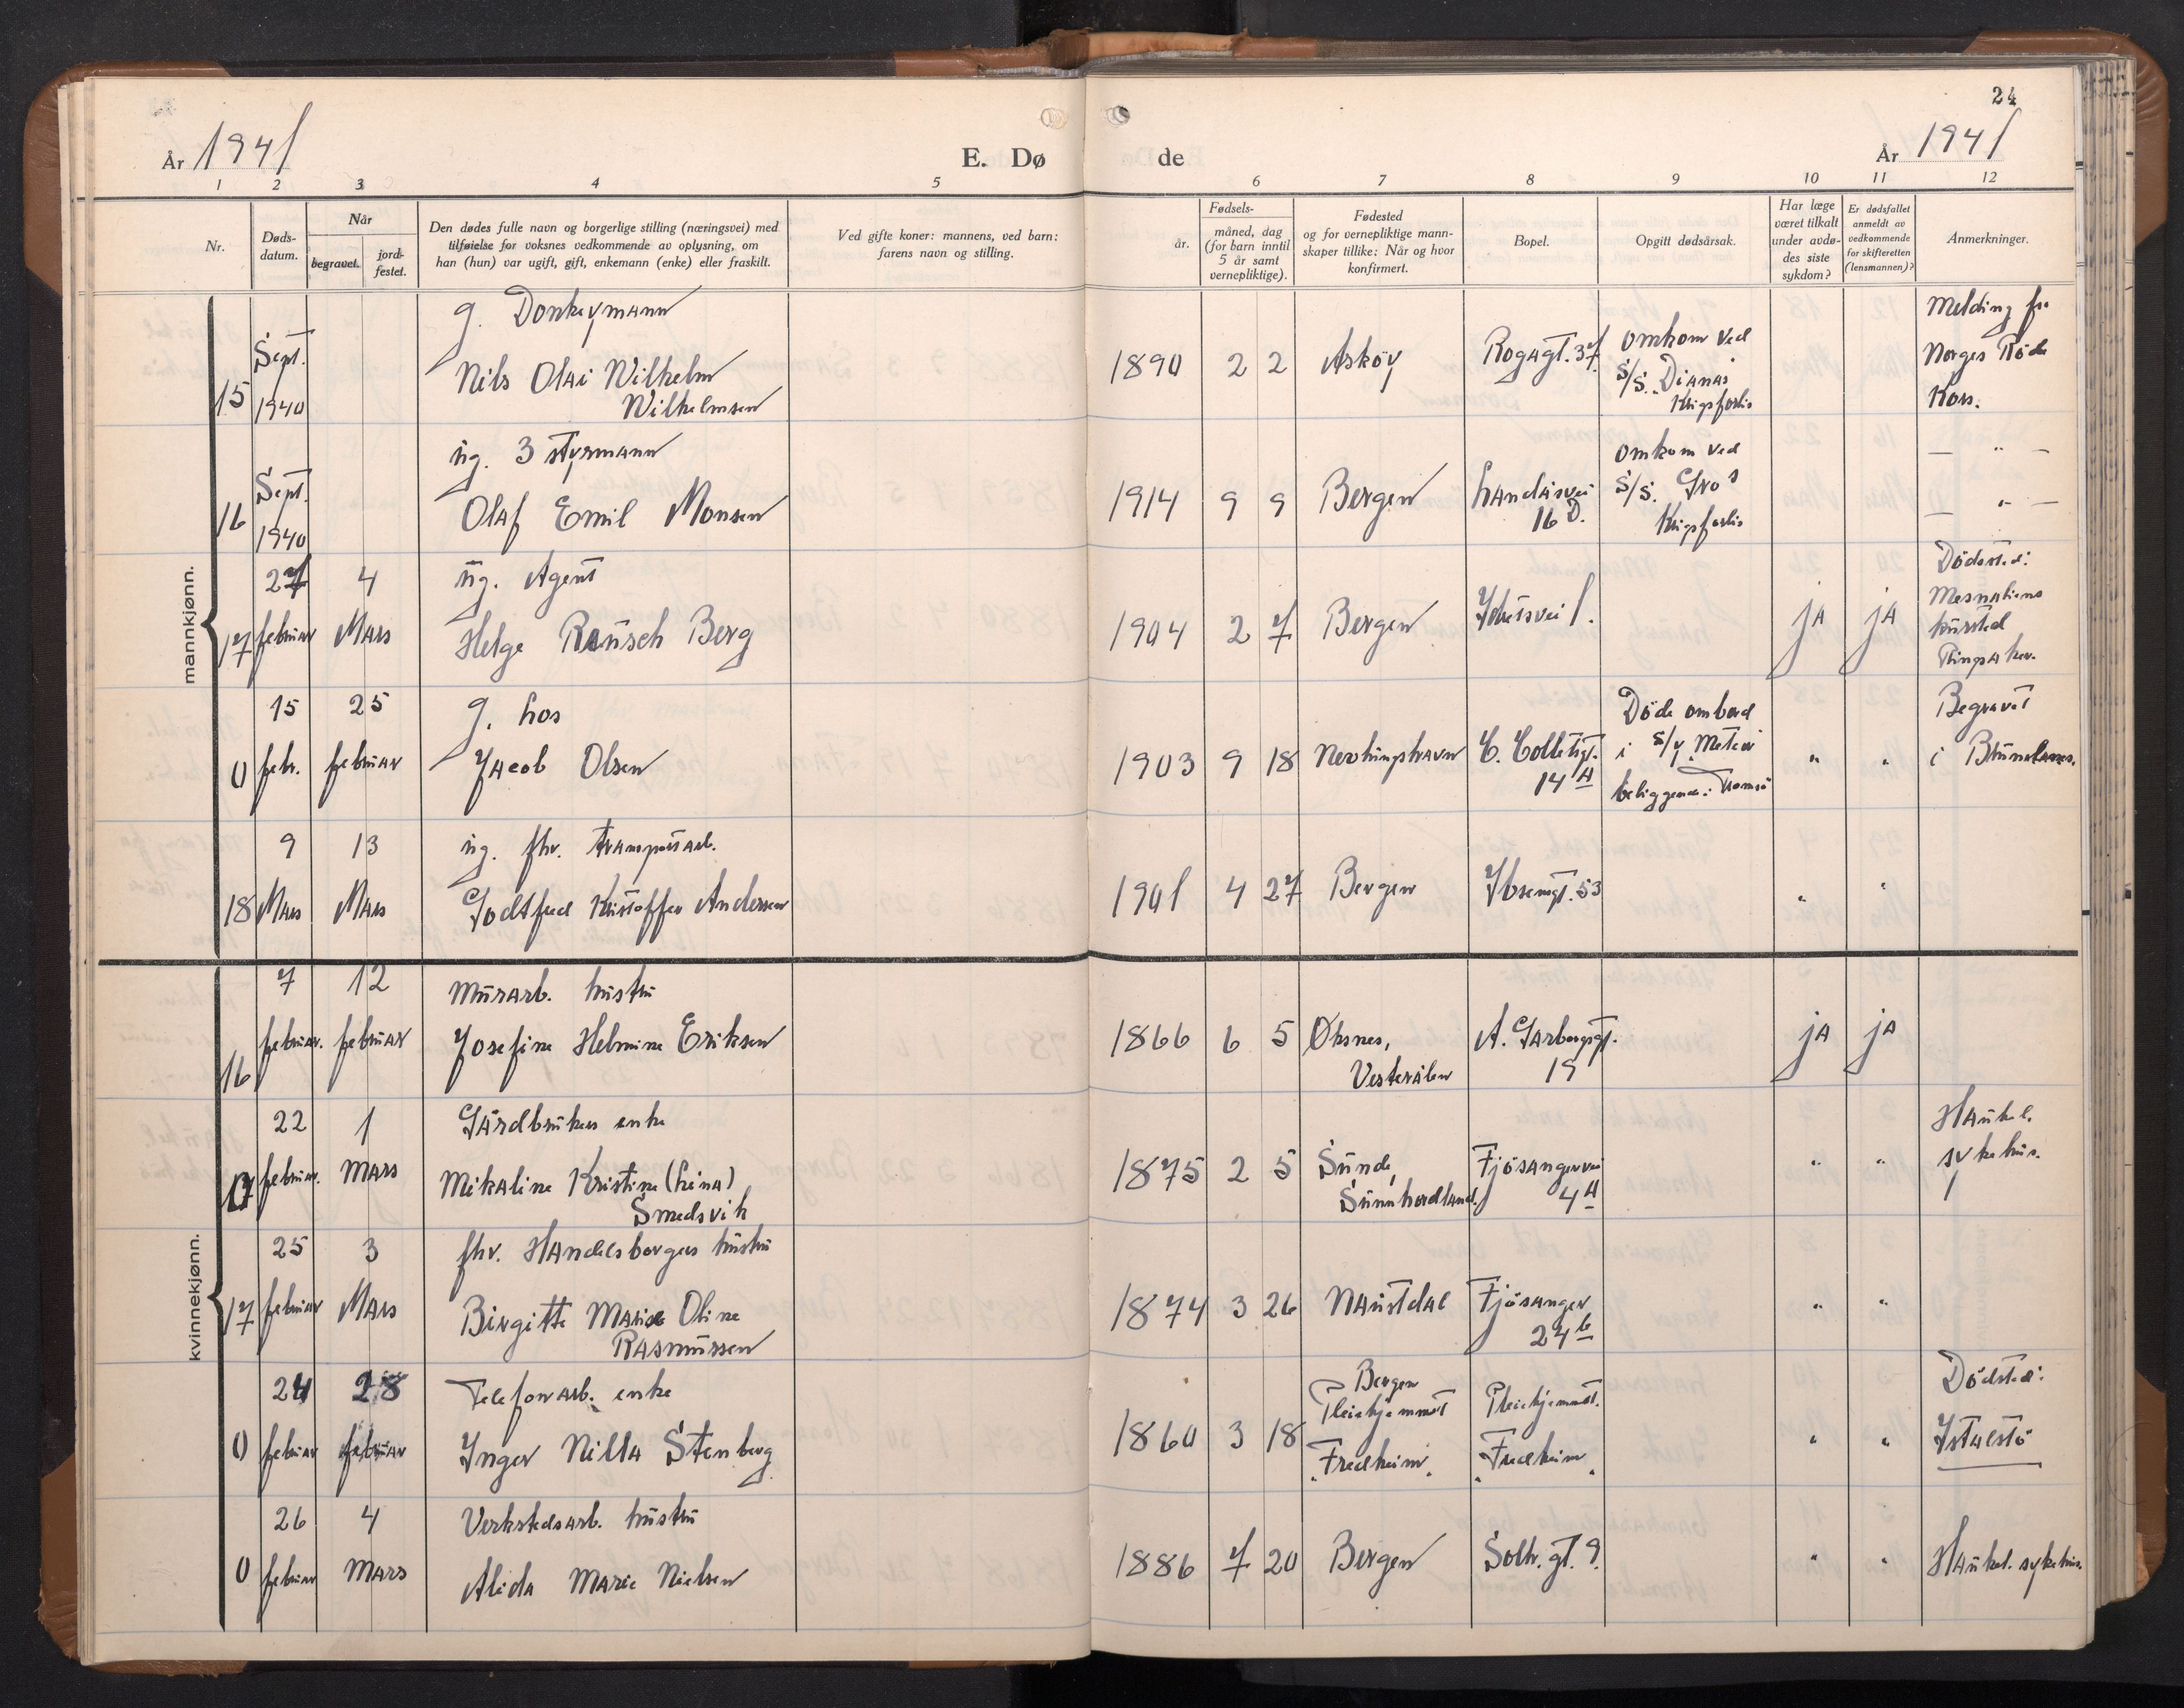 24
År 1941
E. Dø
de
År 1941
1 2 3 4 5 6 7 8 9 10 11 12
Nr.
Døds-
datum.
Når
begravet.
jord-
festet.
Den dødes fulle navn og borgerlige stilling (næringsvei) med
tilføielse for voksnes vedkommende av oplysning, om
han (hun) var ugift, gift, enkemann (enke) eller fraskilt.
Ved gifte koner: mannens, ved barn:
farens navn og stilling.
Fødsels-
år.
måned, dag
(for barn inntil
5 år samt
vernepliktige).
Fødested
og for vernepliktige mann-
skaper tillike: Når og hvor
konfirmert.
Bopel.
Opgitt dødsårsak.
Har læge
været tilkalt
under avdø-
des siste
sykdom?
Er dødsfallet
anmeldt av
vedkommende
for skifteretten
(lensmannen)?
Anmerkninger.
mannkjønn.
15
Sept.
1940
g. Donkeymann
Nils Olai Wilhelm
Wilhelmsen
1890 2 2 Askøy
Rogagt. 37.
omkom ved
S/S. "Dianas"
Krigsforlis
Melding fra
Norges Røde
Kors.
16
Sept.
1940
ug. 3 styrmann
Olaf Emil Monsen
1914 9 9 Bergen
Landåsvei
16 D.
omkom ved
S/S. Gro s
Krigsforlis
— " —
— " —
17
27
februar
4
Mars
ug. Agent
Helge Rausch Berg
1904 2 7 Bergen
Idrettsvei 1.
ja ja
Dødssted:
Mesnaliens
kursted
Ringsaker.
0
15
febr.
25
februar
g. Los
Jacob Olsen
1903 9 18 Nevlunghavn
C. Colletsgt.
14 A
Døde ombord
i S/y. Meteor
beliggende i Tromsø
" "
Begravet
i Brunlanes.
18
9
Mars
13
Mars
ug. fhv. transportarb.
Godtfred Kristoffer Andersen
1901 4 27 Bergen
Ibsensgt. 53
" "
kvinnekjønn.
16
7
februar.
12
februar
Murarb. hustru
Josefine Helmine Eriksen
1866 6 5 Øksnes,
Vesterålen
A. Garborgsgt.
19
ja ja
0
22
februar.
1
Mars
Gårdbrukers enke
Mikaline Kristine (Lina)
Smedsvik
1875 2 5 Sunde,
Sunnhordland.
Fjøsangervei
4 A
" "
Haukel.
sykehus.
17
25
februar
3
Mars
fhv. Handelsborgers hustru
Birgitte Marie Oline
Rasmussen
1874 3 26 Naustdal
Fjøsanger
24 b
" "
0
24
februar
28
februar
Telefonarb. enke
Inger Nilla Stenberg
1860 3 18
Bergen
Pleiehjemmet
"Fredheim"
Pleiehjemmet.
"Fredheim"
" "
Dødssted:
Ystalstø
0
26
februar
4
Mars
Verkstedsarb. hustru
Alida Marie Nielsen
1886 7 20 Bergen
Solh. gt. 9.
" "
Haukel. sykehus.